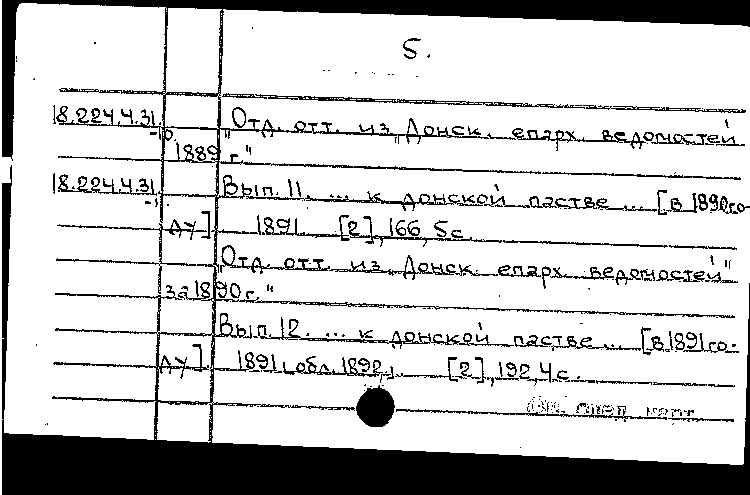 5.
18.224.4.31 -10 „Отд. отт. из „Донск. епарх. ведомостей
1889 г."
18.224.4.31 Вып. 11. ... к донской пастве ... [в 1890 го-
ду] 1891 [2], 166, 5 с.
„Отд. отт. из „Донск. епарх. ведомостей"
за 1890 г."
Вып. 12. ... к донской пастве ... [в 1891 го-
ду]. 1891 [обл. 1892]. [2], 192, 4 с.
См. след. карт.